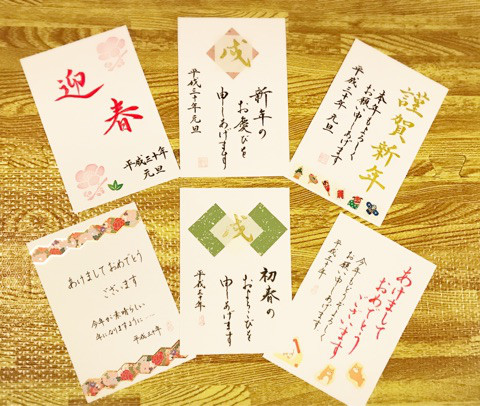 迎
春
平成三十年
元旦
戌
新年の
お慶びを
申しあげます
平成三十年 元旦
謹賀新年
本年もよろしく
お願い申しあげます
平成三十年 元旦
あけましておめでとう
ございます
今年が素晴らしい
年になりますように…
平成三十年
戌
初春の
およろこびを
申しあげます
平成三十年
あけまして
おめでとう
ございます
今年もどうぞよろしく
お願い申しあげます
平成三十年